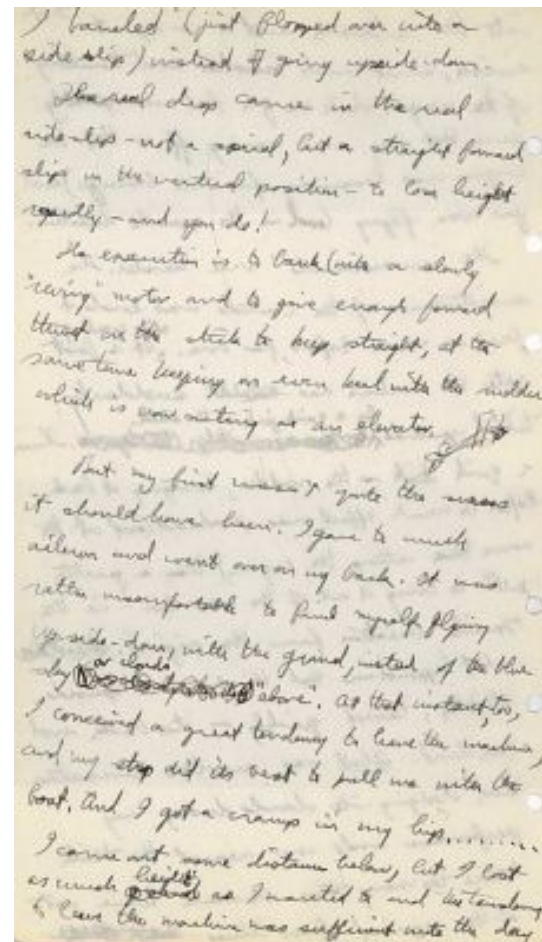 I banked (just flopped over into a
side slip) instead of going upside-down.
The real drop came in the real
side-slip - not a spiral, but a straight forward
slip in the vertical position - to lose height
rapidly - and you do!
Its execution is to bank (with a slowly
"reving" motor and to give enough forward
thrust on the stick to keep straight, at the
same time keeping an even keel with the rudder
which is now acting as an elevator.
But my first wasn't quite the success
it should have been. I gave to much
aileron and went over on my back. It was
rather uncomfortable to find myself flying
up-side-down, with the ground, instead of the blue
sky or clouds "above". At that instant, too,
I conceived a great tendency to leave the machine,
and my strap did its best to pull me into the
boat. And I got a cramp in my hip.........
I came out some distance below, but I lost
as much height as I wanted to and the tendency
to leave the machine was sufficient with the day